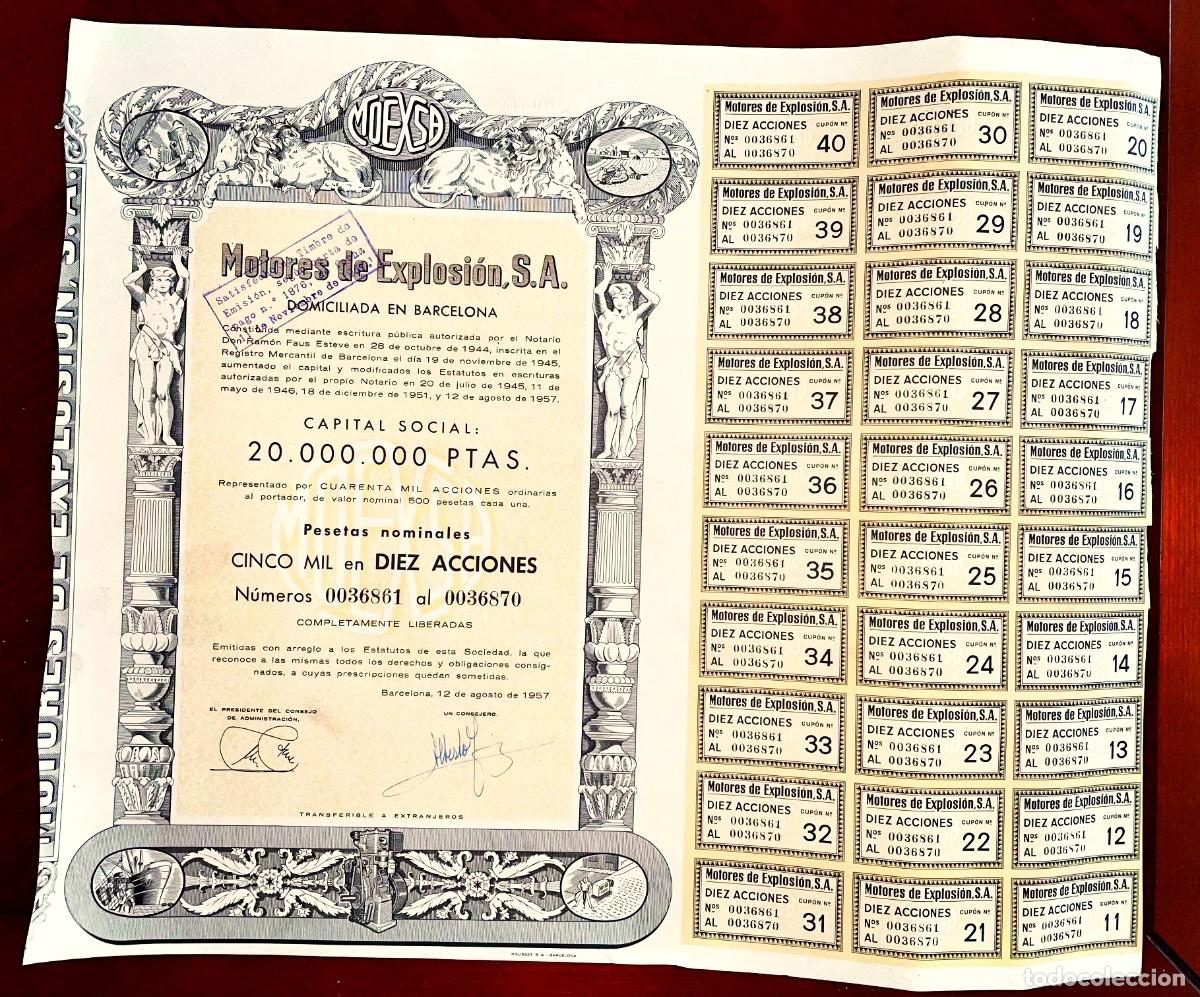 MOEXSA
Motores de Explosión, S.A.
DOMICILIADA EN BARCELONA
Constituída mediante escritura pública autorizada por el Notario
Don Ramón Faus Esteve en 28 de octubre de 1944, inscrita en el
Registro Mercantil de Barcelona el día 19 de noviembre de 1945,
aumentado el capital y modificados los Estatutos en escrituras
autorizadas por el propio Notario en 20 de julio de 1945, 11 de
mayo de 1946, 18 de diciembre de 1951, y 12 de agosto de 1957.
CAPITAL SOCIAL:
20.000.000 PTAS.
Representado por CUARENTA MIL ACCIONES ordinarias
al portador, de valor nominal 500 pesetas cada una.
Pesetas nominales
CINCO MIL en DIEZ ACCIONES
Números 0036861 al 0036870
COMPLETAMENTE LIBERADAS
Emitidas con arreglo a los Estatutos de esta Sociedad, la que
reconoce a las mismas todos los derechos y obligaciones consig-
nados, a cuyas prescripciones quedan sometidas.
Barcelona, 12 de agosto de 1957
EL PRESIDENTE DEL CONSEJO
DE ADMINISTRACIÓN,
UN CONSEJERO,
TRANSFERIBLE A EXTRANJEROS
Satisfe Timbre de
Emisión, carta de
pago n.º 1876
de Noviembre de
MOTORES DE EXPLOSIÓN, S.A.
Motores de Explosión, S.A.
DIEZ ACCIONES CUPÓN Nº
Nos 0036861
AL 0036870 40
Motores de Explosión, S.A.
DIEZ ACCIONES CUPÓN Nº
Nos 0036861
AL 0036870 30
Motores de Explosión, S.A.
DIEZ ACCIONES CUPÓN Nº
Nos 0036861
AL 0036870 20
Motores de Explosión, S.A.
DIEZ ACCIONES CUPÓN Nº
Nos 0036861
AL 0036870 39
Motores de Explosión, S.A.
DIEZ ACCIONES CUPÓN Nº
Nos 0036861
AL 0036870 29
Motores de Explosión, S.A.
DIEZ ACCIONES CUPÓN Nº
Nos 0036861
AL 0036870 19
Motores de Explosión, S.A.
DIEZ ACCIONES CUPÓN Nº
Nos 0036861
AL 0036870 38
Motores de Explosión, S.A.
DIEZ ACCIONES CUPÓN Nº
Nos 0036861
AL 0036870 28
Motores de Explosión, S.A.
DIEZ ACCIONES CUPÓN Nº
Nos 0036861
AL 0036870 18
Motores de Explosión, S.A.
DIEZ ACCIONES CUPÓN Nº
Nos 0036861
AL 0036870 37
Motores de Explosión, S.A.
DIEZ ACCIONES CUPÓN Nº
Nos 0036861
AL 0036870 27
Motores de Explosión, S.A.
DIEZ ACCIONES CUPÓN Nº
Nos 0036861
AL 0036870 17
Motores de Explosión, S.A.
DIEZ ACCIONES CUPÓN Nº
Nos 0036861
AL 0036870 36
Motores de Explosión, S.A.
DIEZ ACCIONES CUPÓN Nº
Nos 0036861
AL 0036870 26
Motores de Explosión, S.A.
DIEZ ACCIONES CUPÓN Nº
Nos 0036861
AL 0036870 16
Motores de Explosión, S.A.
DIEZ ACCIONES CUPÓN Nº
Nos 0036861
AL 0036870 35
Motores de Explosión, S.A.
DIEZ ACCIONES CUPÓN Nº
Nos 0036861
AL 0036870 25
Motores de Explosión, S.A.
DIEZ ACCIONES CUPÓN Nº
Nos 0036861
AL 0036870 15
Motores de Explosión, S.A.
DIEZ ACCIONES CUPÓN Nº
Nos 0036861
AL 0036870 34
Motores de Explosión, S.A.
DIEZ ACCIONES CUPÓN Nº
Nos 0036861
AL 0036870 24
Motores de Explosión, S.A.
DIEZ ACCIONES CUPÓN Nº
Nos 0036861
AL 0036870 14
Motores de Explosión, S.A.
DIEZ ACCIONES CUPÓN Nº
Nos 0036861
AL 0036870 33
Motores de Explosión, S.A.
DIEZ ACCIONES CUPÓN Nº
Nos 0036861
AL 0036870 23
Motores de Explosión, S.A.
DIEZ ACCIONES CUPÓN Nº
Nos 0036861
AL 0036870 13
Motores de Explosión, S.A.
DIEZ ACCIONES CUPÓN Nº
Nos 0036861
AL 0036870 32
Motores de Explosión, S.A.
DIEZ ACCIONES CUPÓN Nº
Nos 0036861
AL 0036870 22
Motores de Explosión, S.A.
DIEZ ACCIONES CUPÓN Nº
Nos 0036861
AL 0036870 12
Motores de Explosión, S.A.
DIEZ ACCIONES CUPÓN Nº
Nos 0036861
AL 0036870 31
Motores de Explosión, S.A.
DIEZ ACCIONES CUPÓN Nº
Nos 0036861
AL 0036870 21
Motores de Explosión, S.A.
DIEZ ACCIONES CUPÓN Nº
Nos 0036861
AL 0036870 11
todocoleccion